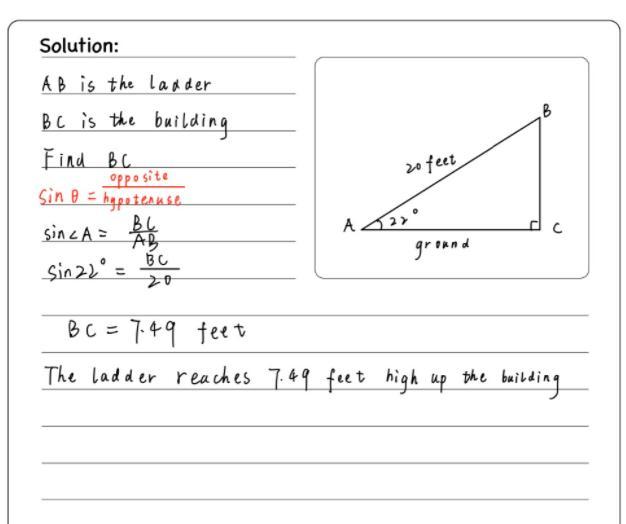 Solution:
AB is the ladder
BC is the building
Find BC
sin θ = opposite / hypotenuse
sin∠A = BC / AB
sin22° = BC / 20
B
20 feet
A 22° C
ground
BC = 7.49 feet
The ladder reaches 7.49 feet high up the building